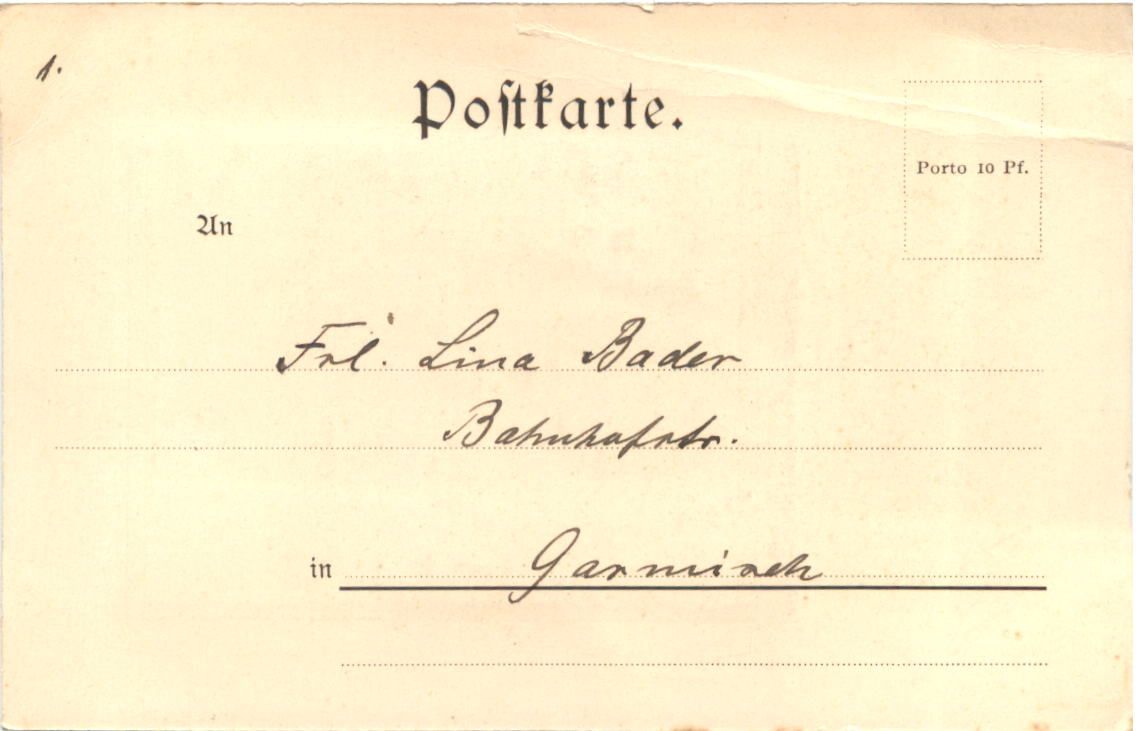 1.
Postkarte.
Porto 10 Pf.
An
Frl. Lina Bader
Bahnhofstr.
in Garmisch